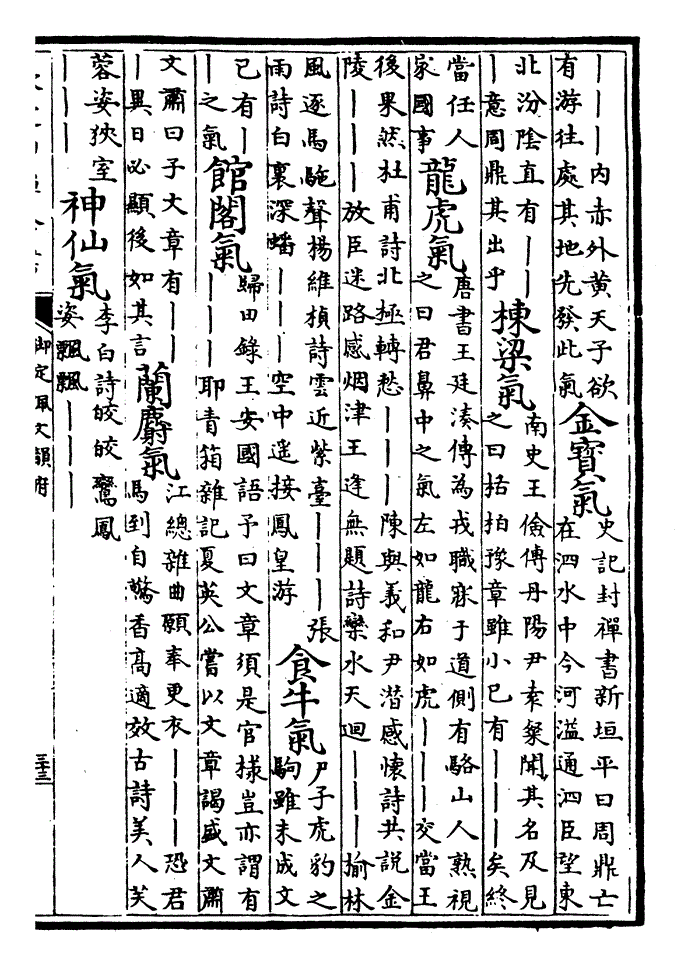 ｜｜｜內赤外黄天子欲
有游往處其地先發此氣
金寶氣
史記封禪書新垣平曰周鼎亡
在泗水中今河溢通泗臣望東
北汾陰直有｜｜
｜意周鼎其出乎
棟梁氣
南史王儉傳丹陽尹袁粲聞其名及見
之曰栝柏豫章雖小已有｜｜｜矣終
當任人
家國事
龍虎氣
唐書王廷湊傳為戎職寐于道側有駱山人熟視
之曰君鼻中之氣左如龍右如虎｜｜｜交當王
後果然杜甫詩北極轉愁｜｜｜陳與義和尹潛感懷詩共說金
陵｜｜｜放臣迷路感烟津王逢無題詩欒水天迴｜｜｜榆林
風逐馬駞聲楊維楨詩雲近紫臺｜｜｜張
雨詩白裹深蟠｜｜｜空中遥接鳳皇游
食牛氣
尸子虎豹之
駒雖未成文
已有｜
｜之氣
館閣氣
歸田錄王安國語予曰文章須是官様豈亦謂有
｜｜｜耶青箱雜記夏英公嘗以文章謁盛文肅
文肅曰子文章有｜｜
｜異日必顯後如其言
蘭麝氣
江總雜曲願奉更衣｜｜｜恐君
馬到自驚香髙適效古詩美人芙
蓉姿狹室
｜｜｜
神仙氣
李白詩皎皎鸞鳳
姿飄飄｜｜｜
御定佩文韻府